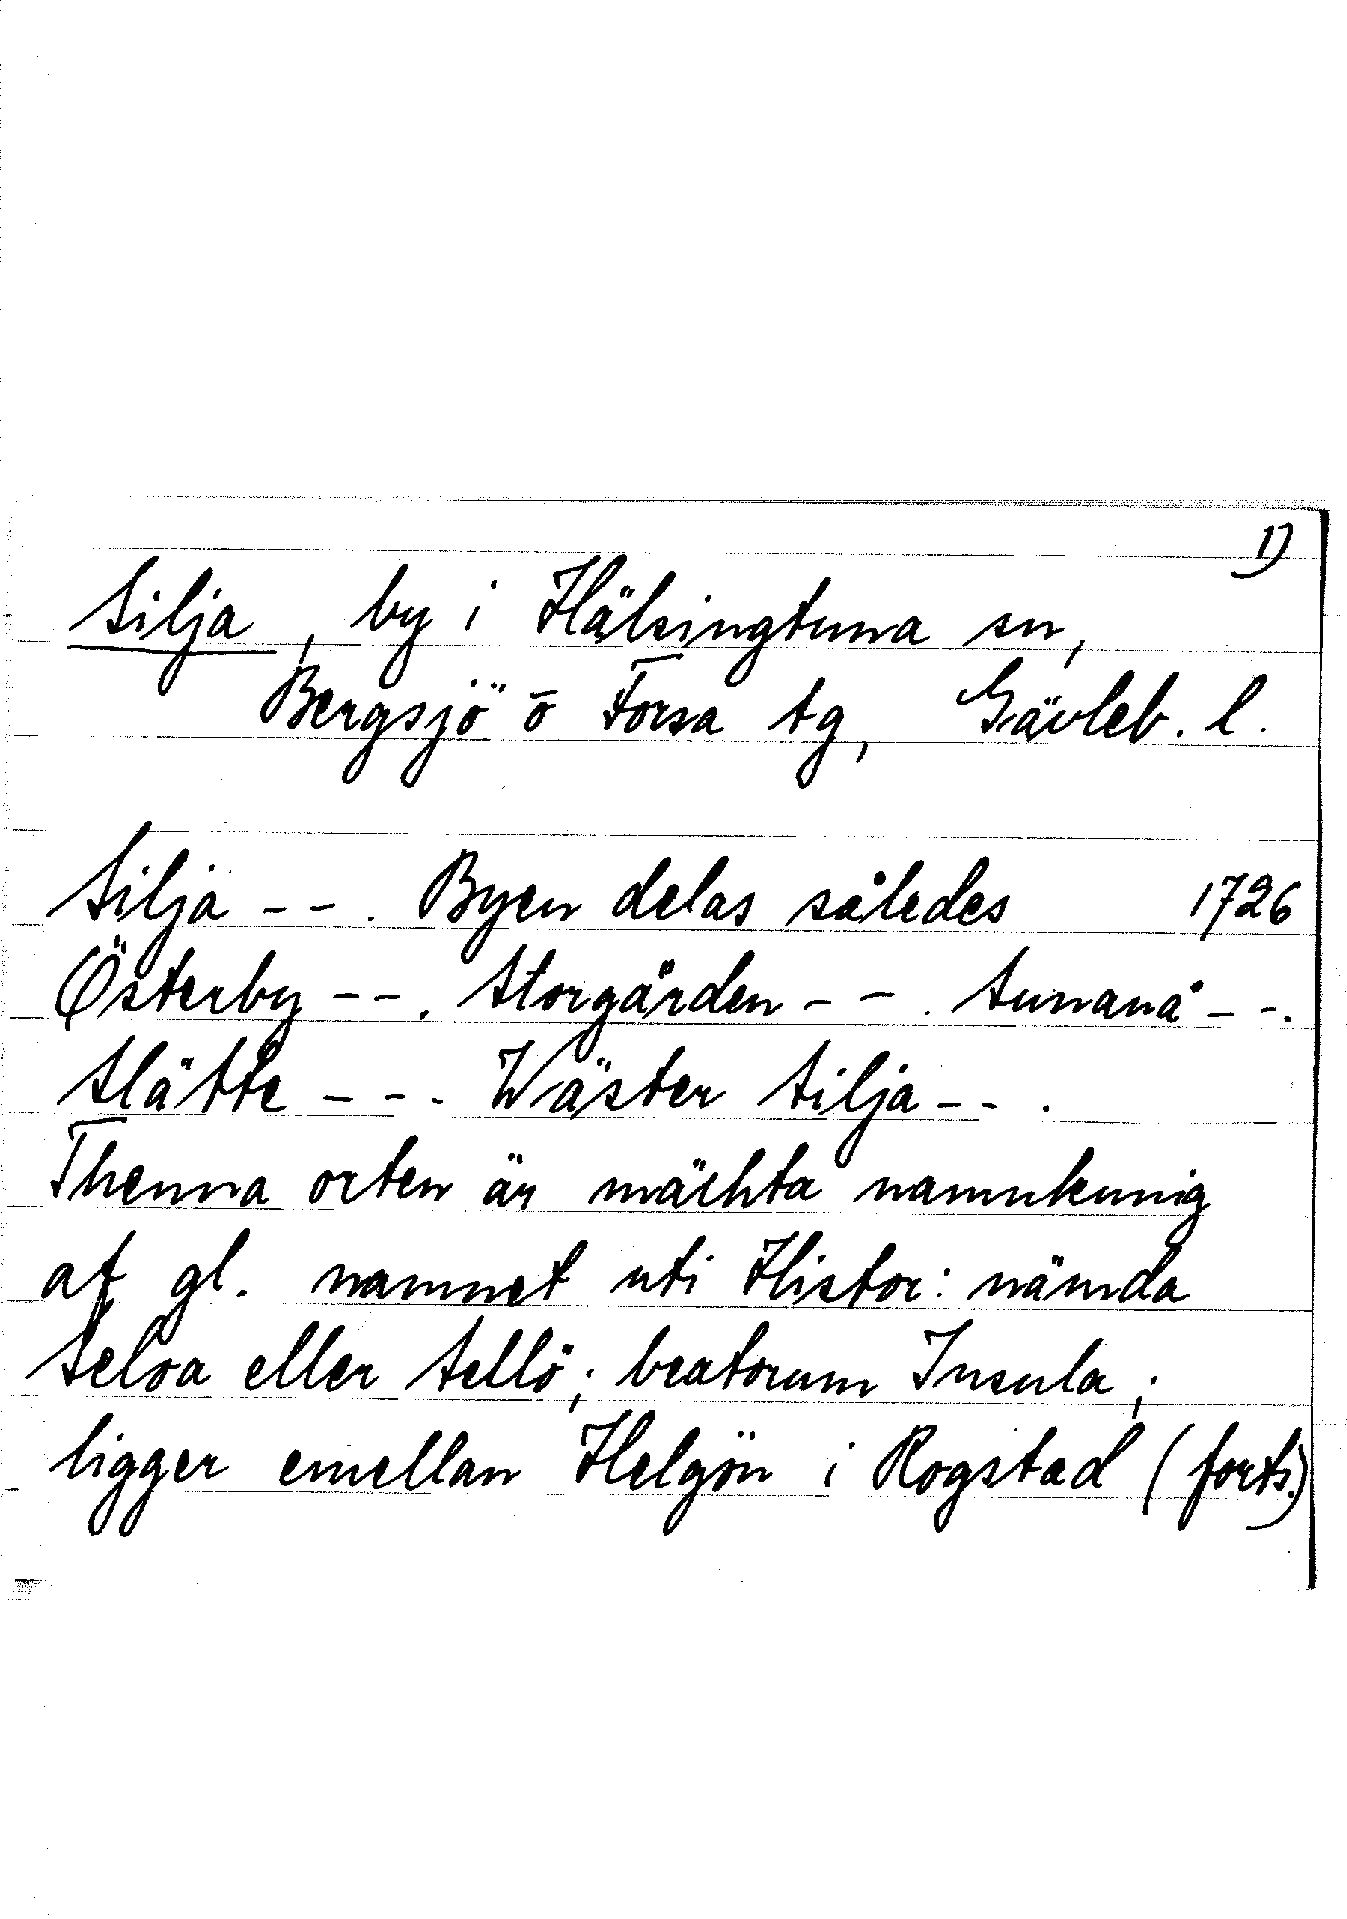 1)
Silja, by i Hälsingtuna sn,
Bergsjö o Forsa tg, Gävleb. l.
Silja - - . Byen delas således 1726
Österby - - . Storgården - - . Sunanå - - .
Slätte - - - Wäster Silja - - .
Thenna orten är mächta namnkunig
af gl. namnet uti Histor: nämda
Seloa eller Sellö; beatorum Insula;
ligger emellan Helgön i Rogstad (forts.)